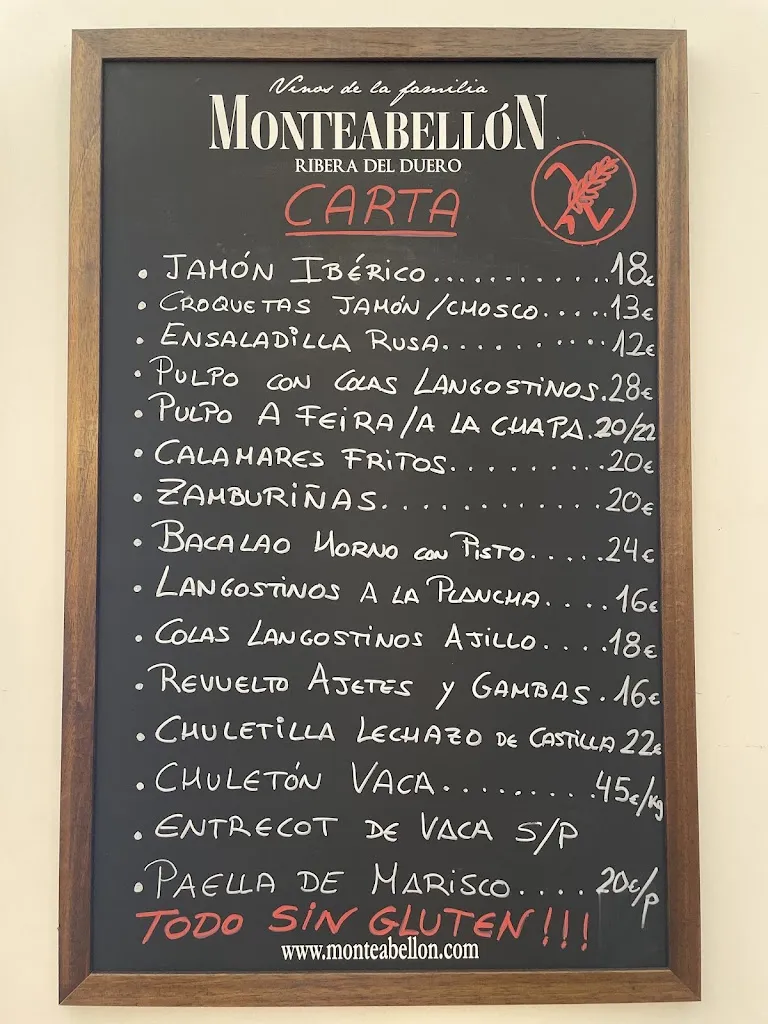 Vinos de la familia
MONTEABELLÓN
RIBERA DEL DUERO
CARTA
• JAMÓN IBÉRICO............18€
• CROQUETAS JAMÓN/CHOSCO.....13€
• ENSALADILLA RUSA..........12€
• PULPO CON COLAS LANGOSTINOS.28€
• PULPO A FEIRA/A LA CHAPA.20/22
• CALAMARES FRITOS.........20€
• ZAMBURIÑAS............20€
• BACALAO HORNO CON PISTO.....24€
• LANGOSTINOS A LA PLANCHA....16€
• COLAS LANGOSTINOS AJILLO....18€
• REVUELTO AJETES Y GAMBAS.16€
• CHULETILLA LECHAZO DE CASTILLA 22€
• CHULETÓN VACA.........45€/Kg
• ENTRECOT DE VACA S/P
• PAELLA DE MARISCO....20€/P
TODO SIN GLUTEN!!!
www.monteabellon.com